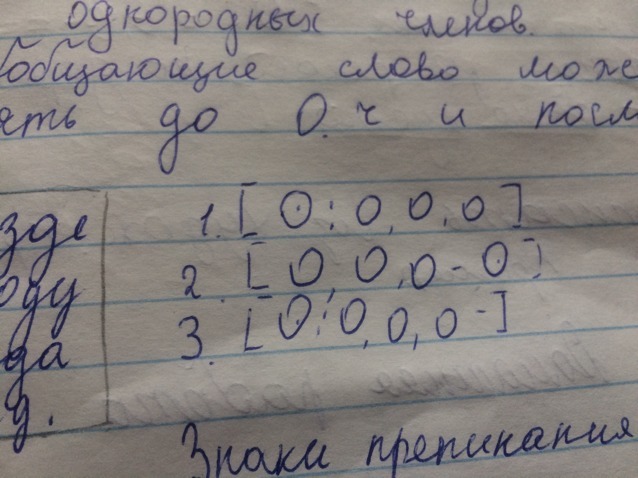 однородных членов.
Обобщающие слово може
ять до О.ч и посл
зде 1. [ ʘ : О, О, О ]
оду 2. [ О, О, О - ʘ ]
да 3. [ ʘ : О, О, О - ]
д.
Знаки препинания